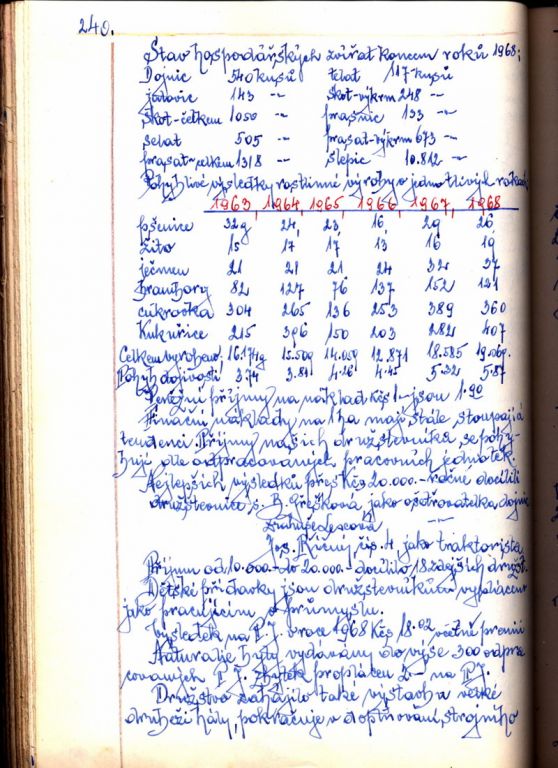 240.
Stav hospodářských zvířat koncem roků 1968:
Dojnic 540 kusů telat 117 kusů
jalovic 143 -"- skot-výkrm 248 -"-
skot-celkem 1050 -"- prasnic 133 -"-
selat 505 -"- prasat-výkrm 673 -"-
prasat-celkem 1318 -"- slepic 10.812 -"-
Pohyblivé výsledky rostlinné výroby v jednotlivých rokách
1963, 1964, 1965, 1966, 1967, 1968
pšenice 32q 24, 23, 16, 29 26
žito 15 17 17 13 16 19
ječmen 21 21 21 24 32 37
brambory 82 127 76 137 152 121
cukrovka 304 265 136 253 389 360
Kukuřice 215 396 150 203 282 407
Celkem vyrobeno 16.174q 15.509 14.059 12.871 18.585 19.069.
Pohyb dojivosti 3.74 3.81 4.28 4.45 5.32 5.87
Peněžní příjmy na náklad Kčs 1- jsou 1.90
Finanční náklady na 1ha mají stále stoupající
tendenci. Příjmy našich družstevníků se pohy-
bují dle odpracovaných pracovních jednotek.
Nejlepších výsledků přes Kčs 20.000.- ročně docílili
družstevnice s. B. Přešková jako ošetřovatelka dojnic
-"-
Jos. Říčný, čís. 4, jako traktorista
Příjmu od 10.000.- do 20.000.- docílilo 18 zdejších družst.
Dětské přídavky jsou družstevníkům vypláceny
jako pracujícím v průmyslu.
Výsledek na P.J. v roce 1968 Kčs 18.02 včetně premií
Naturálie byly vydávány do výše 300 odpra-
covaných P.J. zbytek proplacen 2- na P.J.
Družstvo zahájilo také výstavbu velké
drůbeží hály, pokračuje v doplňování strojního